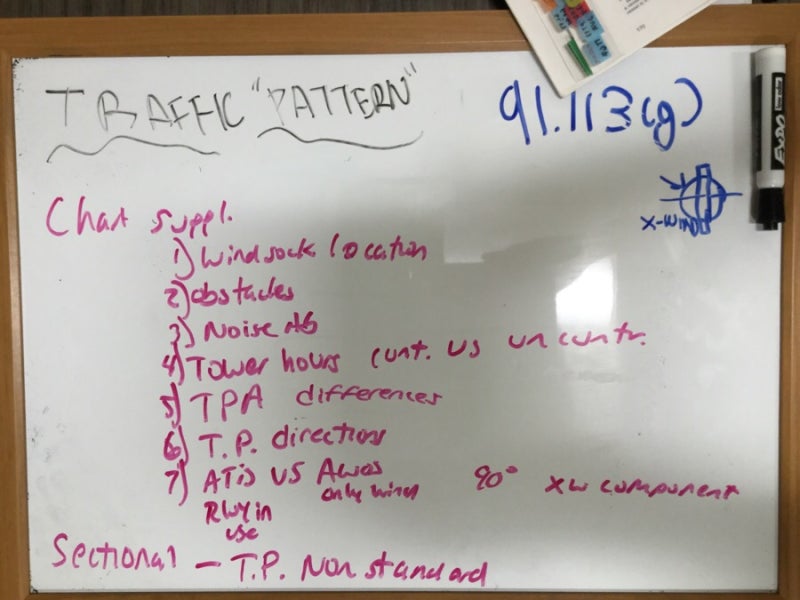 TRAFFIC "PATTERN"
91.113(g)
X-WIND
EXPO
Chart suppl.
1) Windsock location
2) obstacles
3) Noise Ab
4) Tower hours cunt. vs uncuntr.
5) TPA differences
6) T.P. directions
7) ATIS vs Awos 90° xw component
only wind
Rwy in
use
Sectional - T.P. Non standard